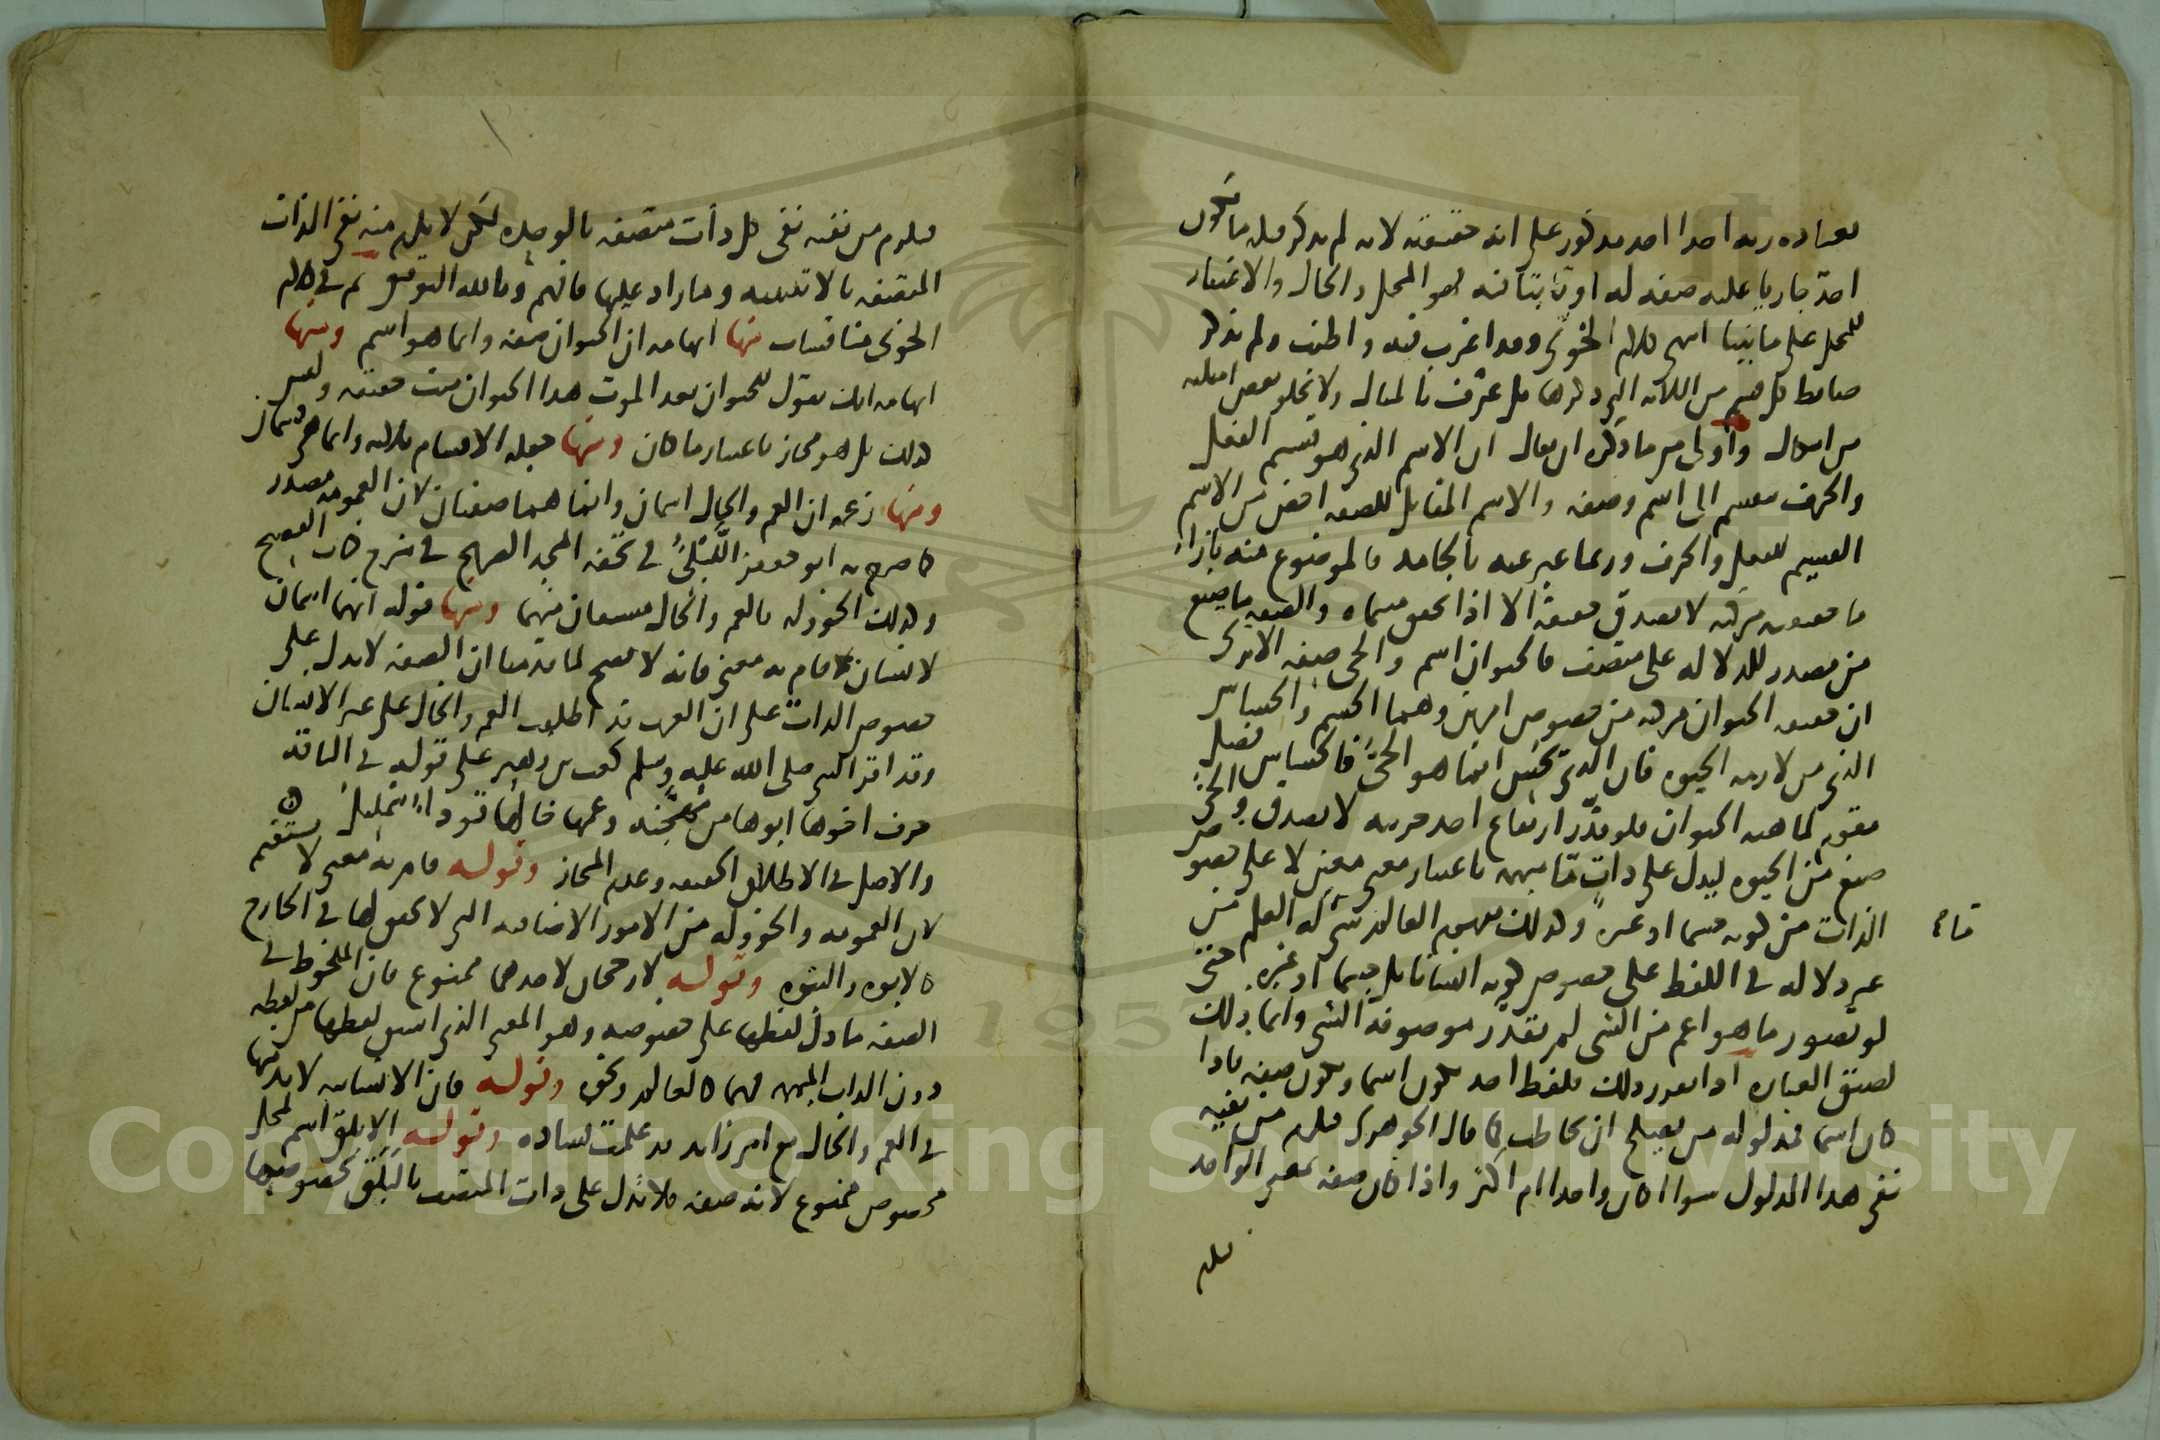 بعباده ربه احدا احد مذكور على انه حقيقة لانه لم يذكر قبله ما يكون
احد جاريا عليه صفة له او ثابتا فيه هو المحل والحال والاعتبار
للمحل على ما بينا انتهى كلام الخونجي وقد اغرب فيه واطنب ولم يذكر
ضابط كل قسم من الثلاثة التي ذكرها بل عرف بالمثال ولا يخلو بعض امثلته
من اشكال واولى من ما ذكره ان يقال ان الاسم الذي هو قسيم الفعل
والحرف ينقسم الى اسم وصفة والاسم المقابل للصفة اخص من الاسم
القسيم للفعل والحرف وربما عبر عنه بالجامد فالموضوع منه بازاء
ما حقيقته مركبة لا يصدق حقيقة الا اذا تحقق مسماه والصفة ما صيغ
من مصدر للدلالة على متصف فالحيوان اسم والحي صفة الا ترى
ان حقيقة الحيوان مركبة من خصوص امرين وهما الجسم والحساس
الذي من لازمه الحيوة فان الذي يحس انما هو الحي فالحساس فصل
مقوم لماهية الحيوان فلو قدر ارتفاع احد جزئيه لا يصدق والحي
صيغ من الحيوة ليدل على ذات ما مبهمة باعتبار معنى معين لا على خصوص
الذات من كونه جسما او غيره وكذلك مفهوم العالم شيء له العلم من
غير دلالة في اللفظ على خصوص كونه انسانا بل جسما او غيره حتى
لو تصور ما هو اعم من الشي لم نقدر موصوفه الشي وانما ذلك
لضيق العبارة اذا تقرر ذلك فلفظ احد يكون اسما ويكون صفة فاذا
كان اسما فمدلوله من يصلح ان يخاطب كما قال الجوهري فيلزم من نفيه
نفي هذا المدلول سواء كان واحدا ام اكثر واذا كان صفة بمعنى الواحد
فيلزم
فيلزم من نفيه نفي كل ذات متصفة بالوحدة لكن لا يلزم منه نفي الذات
المتصفة بالاثنينية وما زاد عليها فافهم وبالله التوفيق ثم في كلام
الخونجي مناقشات منها ايهامه ان الحيوان صفة وانما هو اسم ومنها
ايهامه انك تقول للحيوان بعد الموت هذا الحيوان ميت حقيقة وليس
كذلك بل هو مجاز باعتبار ما كان ومنها جعله الاقسام ثلاثة وانما هي قسمان
ومنها زعمه ان العم والخال اسمان وانما هما صفتان لان العمومة مصدر
كما صرح به ابو جعفر اللبلي في تحفة المجد الصريح في شرح كتاب الفصيح
وكذلك الخؤولة فالعم والخال مشتقان منهما ومنها قوله انهما اسمان
لانسان قام به معنى فانه لا يصح لما قدمنا ان الصفة لا تدل على
خصوص الذات على ان العرب قد اطلقت العم والخال على غير الانسان
وقد اقر النبي صلى الله عليه وسلم كعب بن زهير على قوله في الناقة
حرف اخوها ابوها من مهجنة وعمها خالها قوداء شمليل
والاصل في الاطلاق الحقيقة وعدم المجاز وقوله قام به معنى لا يستقيم
لان العمومة والخؤولة من الامور الاضافية التي لا تحقق لها في الخارج
كالابوة والبنوة وقوله لا رجحان لاحدهما ممنوع فان الملحوظ في
الصفة ما دل لفظها على خصوصه وهو المعنى الذي اشتق لفظها من لفظه
دون الذات المبهمة فيها كالعالم ونحوه وقوله فان الانسانية لا بد منها
في العم والخال مع امر زائد قد علمت فساده وقوله الابلق اسم لمحل
مخصوص ممنوع لانه صفة فلا تدل على ذات المتصف بالبلق بخصوصها
قاء م
Copyright © King Saud University
1957